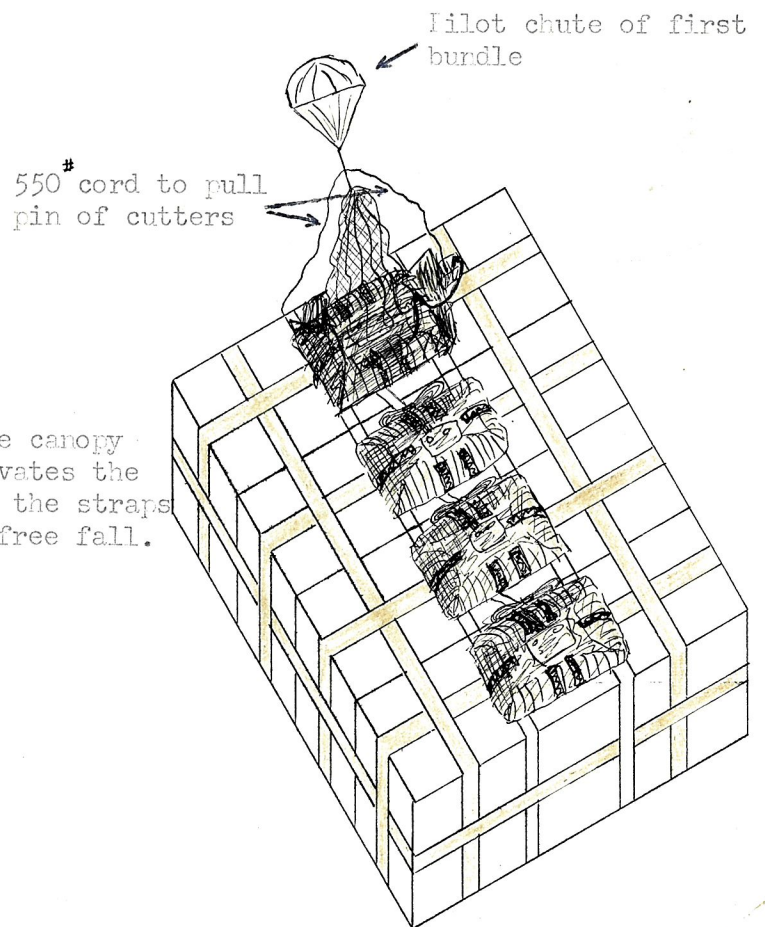 Pilot chute of first
bundle
550# cord to pull
pin of cutters
e canopy
vates the
the straps
free fall.